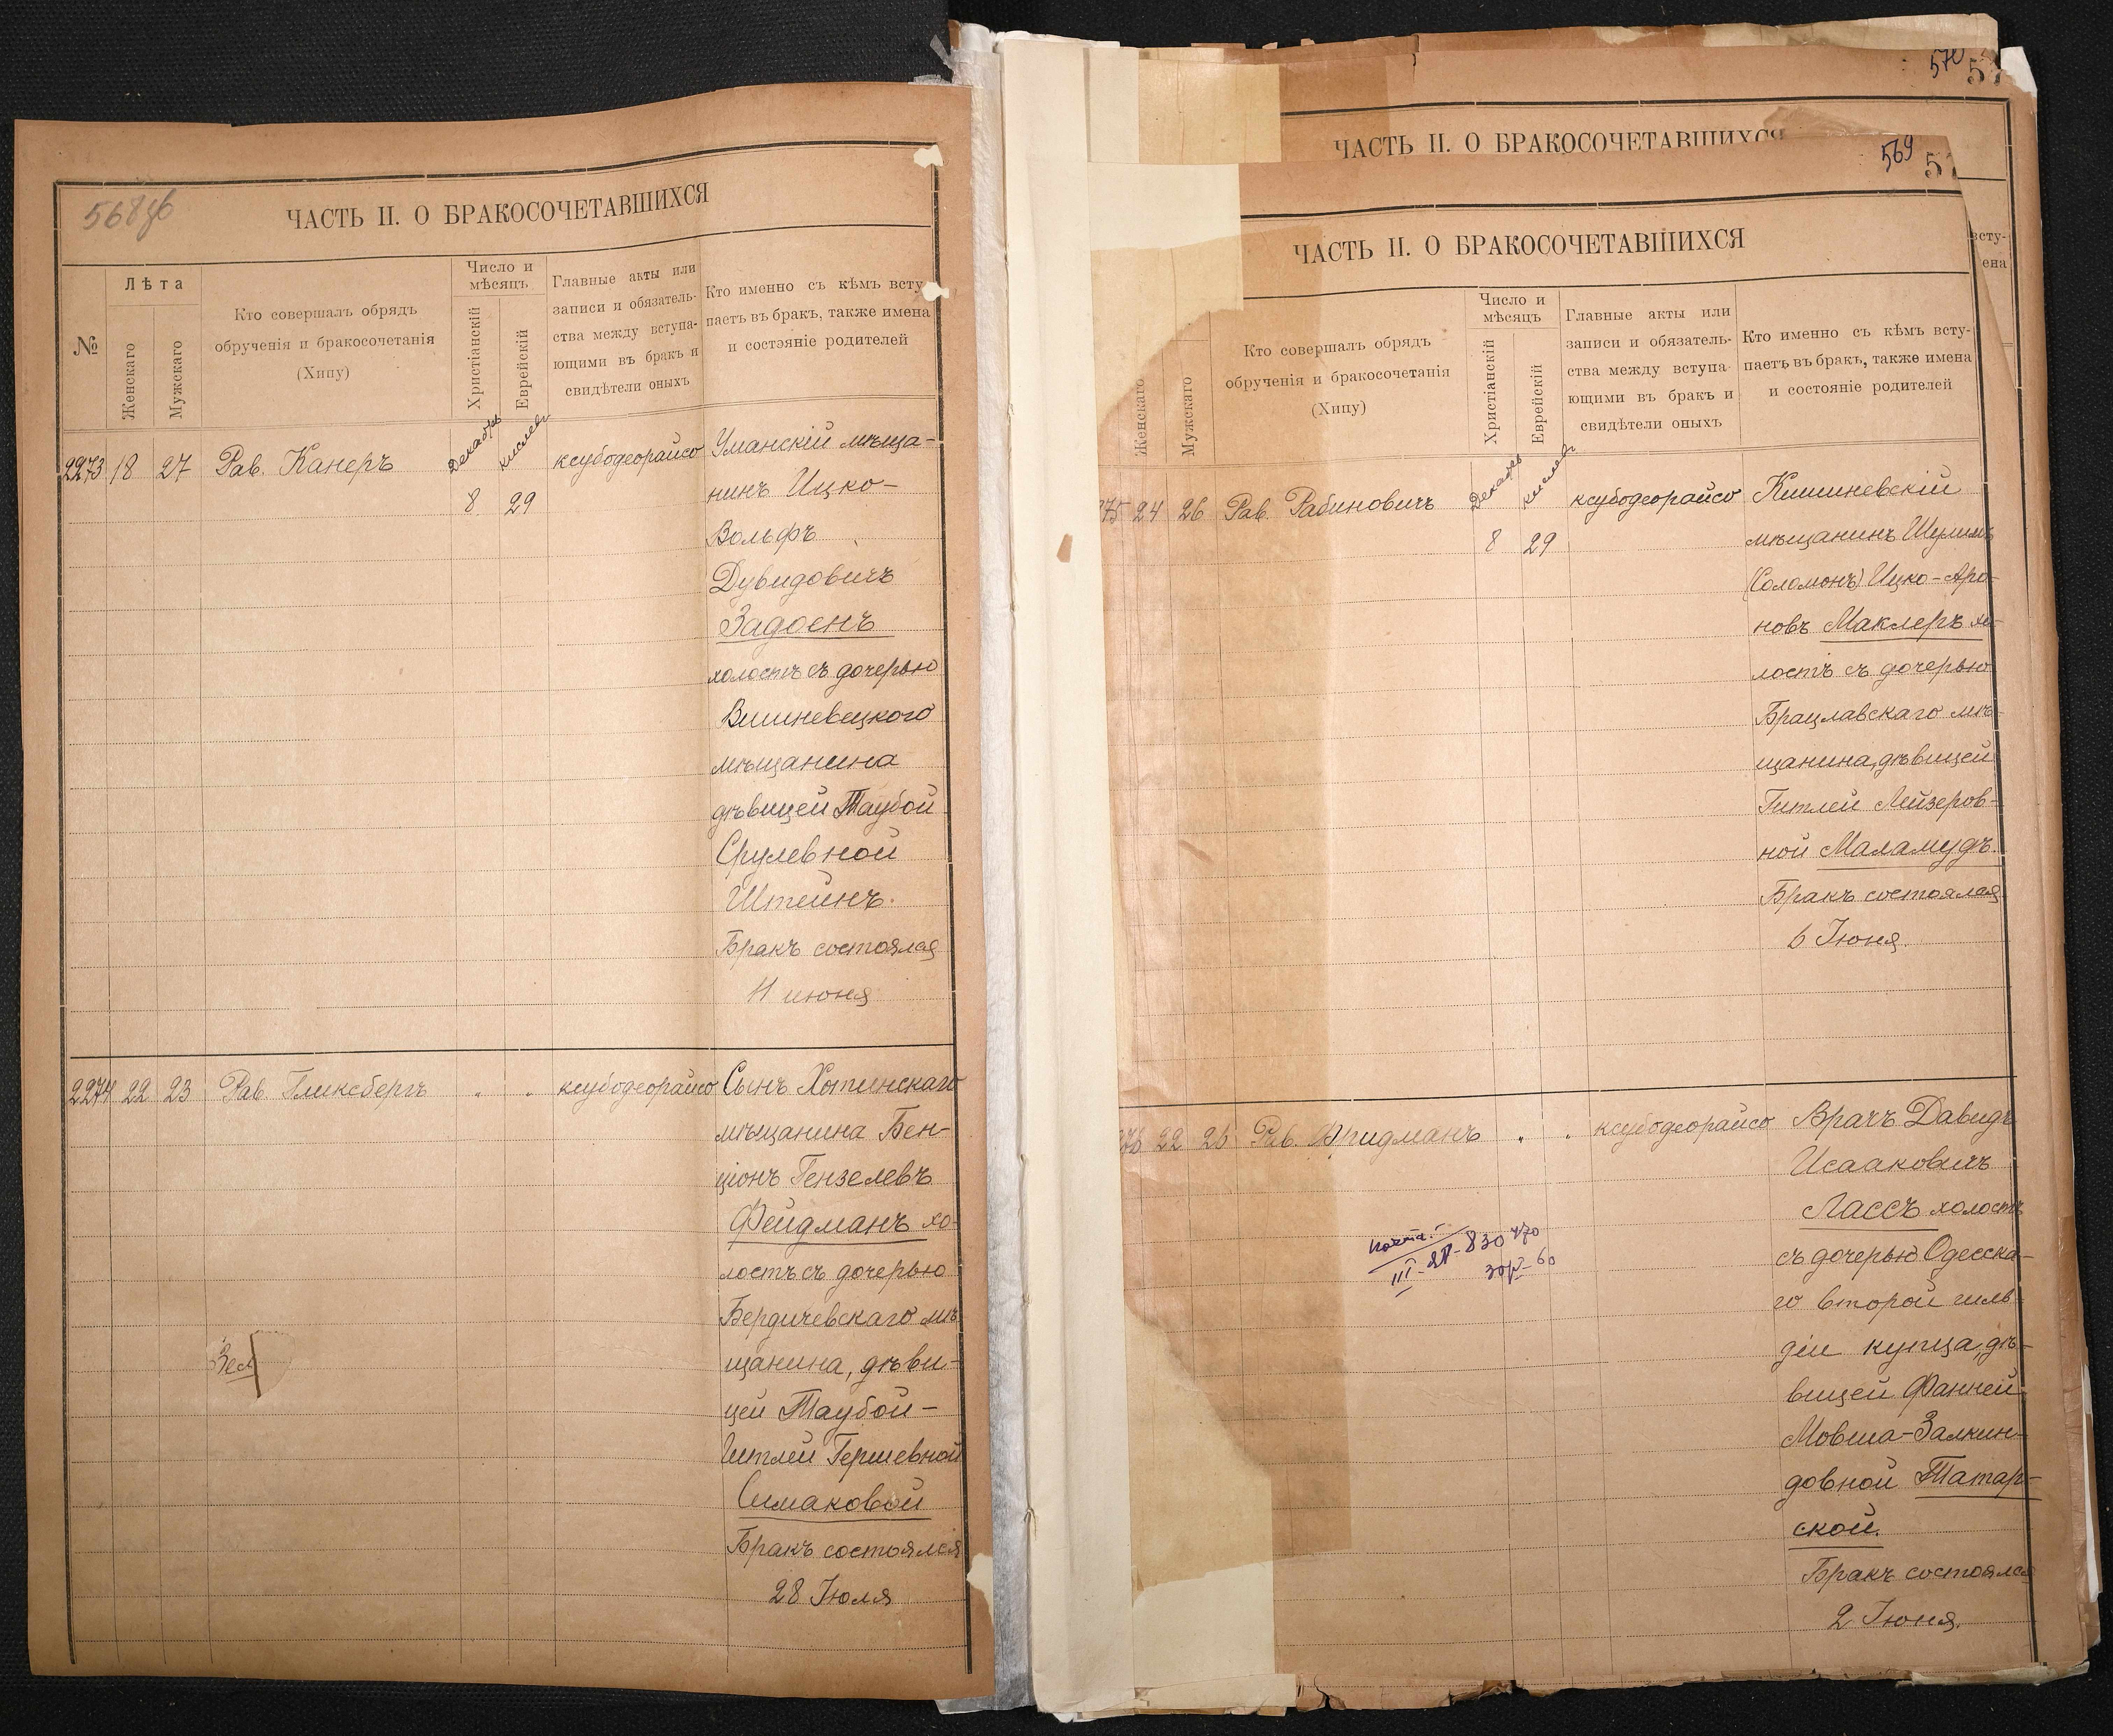 568об
ЧАСТЬ II. О БРАКОСОЧЕТАВШИХСЯ
№
Лѣта
Женскаго
Мужскаго
Кто совершалъ обрядъ
обрученія и бракосочетанія
(Хипу)
Число и
мѣсяцъ
Христіанскій
Еврейскій
Главные акты или
записи и обязатель-
ства между вступа-
ющими въ бракъ и
свидѣтели оныхъ
Кто именно съ кѣмъ всту
паетъ въ бракъ, также имена
и состояніе родителей
2273 18 27 Рав. Канеръ
Декабрь кислевъ
8 29
ксубодеорайсо
Уманскій мѣща-
нинъ Ицко-
Вольфъ
Дувидовичъ
Задоенъ
холостъ съ дочерью
Вишневецкого
мѣщанина
дѣвицей Таубой
Срулевной
Штейнъ.
Бракъ состоялся
11 июня
2274 22 23 Рав. Гликсбергъ " " ксубодеорайсо
Сынъ Хотинскаго
мѣщанина Бен-
ціонъ Гензелевъ
Фейдманъ хо-
лостъ съ дочерью
Бердичевскаго мѣ
щанина, дѣви-
цей Таубой-
Гитлей Гершевной
Симаковой
Бракъ состоялся
28 Июля
570
ЧАСТЬ II. О БРАКОСОЧЕТАВШИХСЯ
всту-
ена
569
ЧАСТЬ II. О БРАКОСОЧЕТАВШИХСЯ
Женскаго
Мужскаго
Кто совершалъ обрядъ
обрученія и бракосочетанія
(Хипу)
Число и
мѣсяцъ
Христіанскій
Еврейскій
Главные акты или
записи и обязатель-
ства между вступа-
ющими въ бракъ и
свидѣтели оныхъ
Кто именно съ кѣмъ всту-
паетъ въ бракъ, также имена
и состояніе родителей
75 24 26 Рав. Рабиновичъ
Декабрь кислевъ
8 29
ксубодеорайсо
Кишиневскій
мѣщанинъ Шулимъ
(Соломонъ) Ицко-Аро-
новъ Маклеръ хо-
лостъ съ дочерью
Брацлавскаго мѣ-
щанина, дѣвицей
Гитлей Лейзеров-
ной Маламудъ.
Бракъ состоялся
6 Июня.
76 22 26 Рав. Фридманъ " " ксубодеорайсо
Врачъ Давидъ
Исааковичъ
Лассъ холостъ
съ дочерью Одесска-
го второй гиль-
діи купца, дѣ-
вицей Фанней
Мовша-Залкин-
довной Татар-
ской.
Бракъ состоялся
2 Июня.